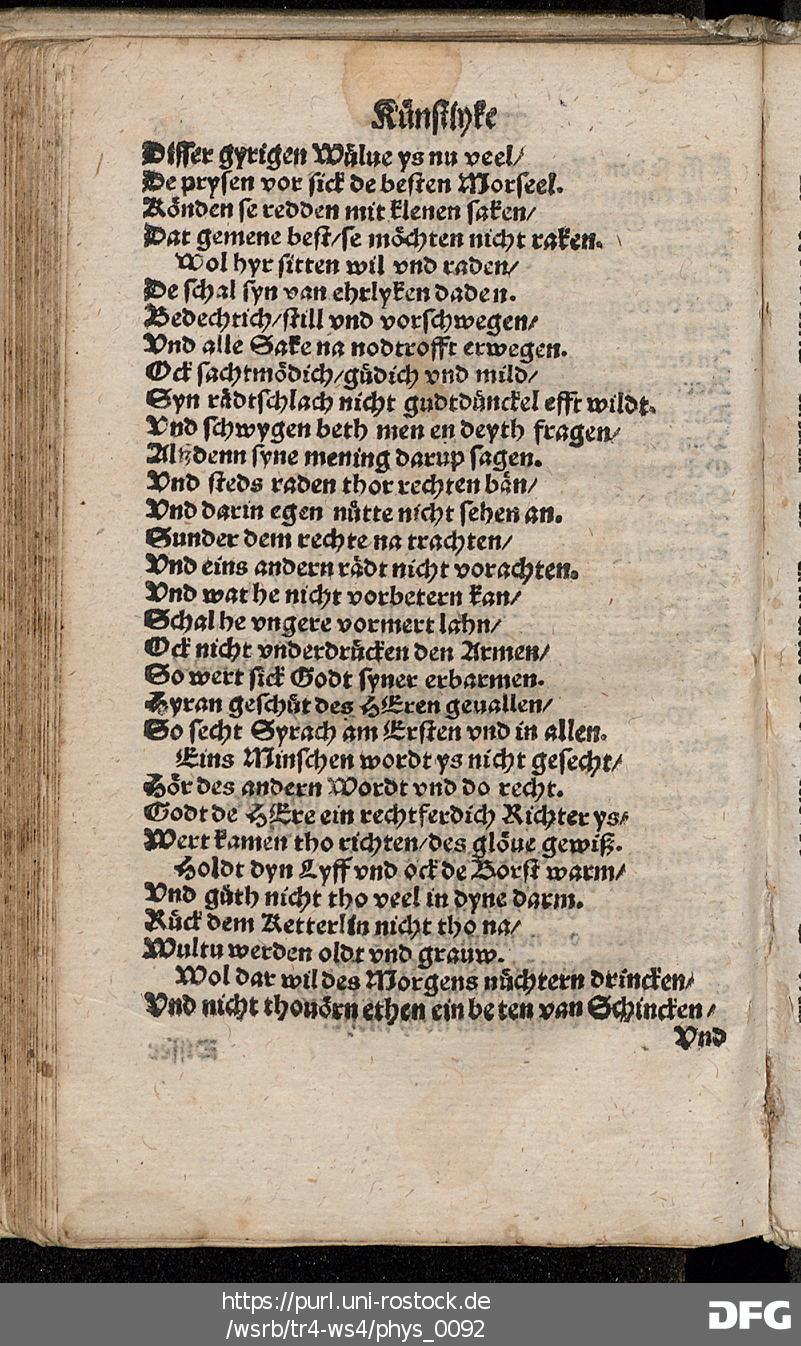 Künstlyke
Disser gyrigen Wülue ys nu veel/
De prysen vor sick de besten Morseel.
Könden se redden mit klenen saken/
Dat gemene best/se möchten nicht raken.
Wol hyr sitten wil vnd raden/
De schal syn van ehrlyken daden.
Bedechtich/still vnd vorschwegen/
Vnd alle Sake na nodtrofft erwegen.
Ock sachtmödich/güdich vnd mild/
Syn rädtschlach nicht gudtdünckel efft wildt.
Vnd schwygen beth men en deyth fragen/
Altzdenn syne mening darup sagen.
Vnd steds raden thor rechten bän/
Vnd darin egen nütte nicht sehen an.
Sunder dem rechte na trachten/
Vnd eins andern rädt nicht vorachten.
Vnd wat he nicht vorbetern kan/
Schal he vngere vormert lahn/
Ock nicht vnderdrücken den Armen/
So wert sick Godt syner erbarmen.
Hyran geschüt des HEren geuallen/
So secht Syrach am Ersten vnd in allen.
Eins Minschen wordt ys nicht gesecht/
Hör des andern Wordt vnd do recht.
Godt de HEre ein rechtferdich Richter ys/
Wert kamen tho richten/des glöue gewiß.
Holdt dyn Lyff vnd ock de Borst warm/
Vnd güth nicht tho veel in dyne darm.
Rück dem Ketterlin nicht tho na/
Wultu werden oldt vnd grauw.
Wol dar wil des Morgens nüchtern drincken/
Vnd nicht thouörn ethen ein beten van Schincken/
Vnd
https://purl.uni-rostock.de
/wsrb/tr4-ws4/phys_0092
DFG